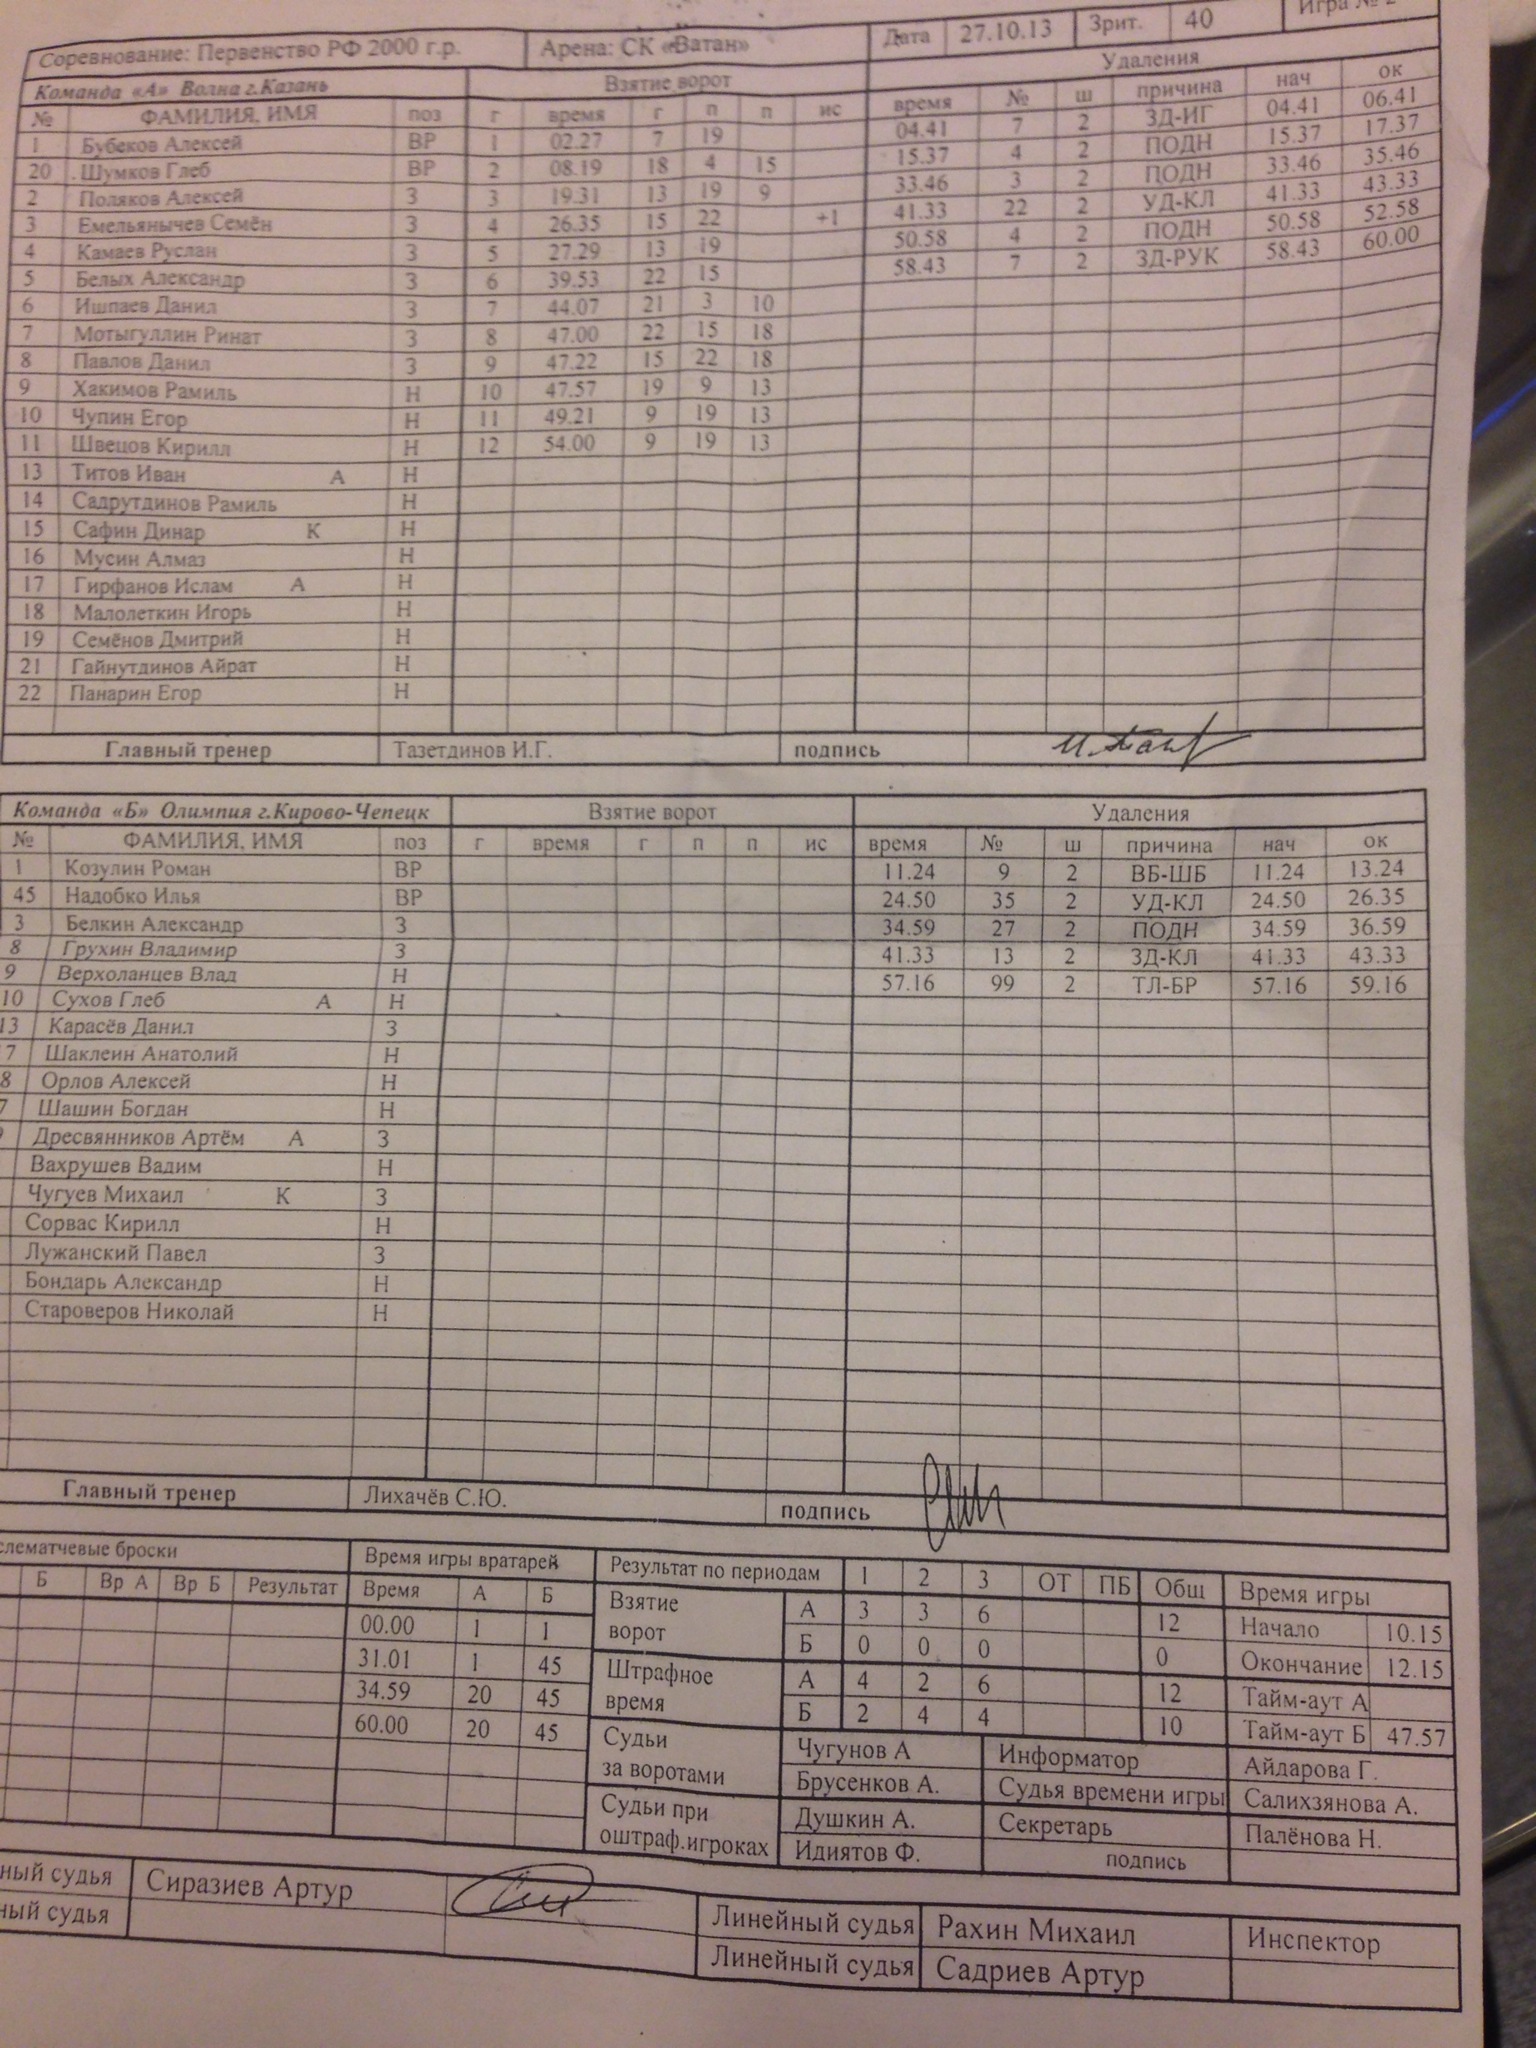 Соревнование: Первенство РФ 2000 г.р. Арена: СК «Ватан» Дата 27.10.13 Зрит. 40 Игра №
Команда «А» Волна г.Казань Взятие ворот Удаления
№ ФАМИЛИЯ, ИМЯ поз г время г п п ис время № ш причина нач ок
1 Бубеков Алексей ВР 1 02.27 7 19 04.41 7 2 ЗД-ИГ 04.41 06.41
20 Шумков Глеб ВР 2 08.19 18 4 15 15.37 4 2 ПОДН 15.37 17.37
2 Поляков Алексей З 3 19.31 13 19 9 33.46 3 2 ПОДН 33.46 35.46
3 Емельянычев Семён З 4 26.35 15 22 +1 41.33 22 2 УД-КЛ 41.33 43.33
4 Камаев Руслан З 5 27.29 13 19 50.58 4 2 ПОДН 50.58 52.58
5 Белых Александр З 6 39.53 22 15 58.43 7 2 ЗД-РУК 58.43 60.00
6 Ишпаев Данил З 7 44.07 21 3 10
7 Мотыгуллин Ринат З 8 47.00 22 15 18
8 Павлов Данил З 9 47.22 15 22 18
9 Хакимов Рамиль Н 10 47.57 19 9 13
10 Чупин Егор Н 11 49.21 9 19 13
11 Швецов Кирилл Н 12 54.00 9 19 13
13 Титов Иван А Н
14 Садрутдинов Рамиль Н
15 Сафин Динар К Н
16 Мусин Алмаз Н
17 Гирфанов Ислам А Н
18 Малолеткин Игорь Н
19 Семёнов Дмитрий Н
21 Гайнутдинов Айрат Н
22 Панарин Егор Н
Главный тренер Тазетдинов И.Г. подпись
Команда «Б» Олимпия г.Кирово-Чепецк Взятие ворот Удаления
№ ФАМИЛИЯ, ИМЯ поз г время г п п ис время № ш причина нач ок
1 Козулин Роман ВР 11.24 9 2 ВБ-ШБ 11.24 13.24
45 Надобко Илья ВР 24.50 35 2 УД-КЛ 24.50 26.35
3 Белкин Александр З 34.59 27 2 ПОДН 34.59 36.59
8 Грухин Владимир З 41.33 13 2 ЗД-КЛ 41.33 43.33
9 Верхоланцев Влад Н 57.16 99 2 ТЛ-БР 57.16 59.16
10 Сухов Глеб А Н
13 Карасёв Данил З
7 Шаклеин Анатолий Н
8 Орлов Алексей Н
7 Шашин Богдан Н
Дресвянников Артём А З
Вахрушев Вадим Н
Чугуев Михаил К З
Сорвас Кирилл Н
Лужанский Павел З
Бондарь Александр Н
Староверов Николай Н
Главный тренер Лихачёв С.Ю. подпись
слематчевые броски Время игры вратарей Результат по периодам 1 2 3 ОТ ПБ Общ Время игры
Б Вр А Вр Б Результат Время А Б Взятие ворот А 3 3 6 12 Начало 10.15
00.00 1 1 Б 0 0 0 0 Окончание 12.15
31.01 1 45 Штрафное время А 4 2 6 12 Тайм-аут А
34.59 20 45 Б 2 4 4 10 Тайм-аут Б 47.57
60.00 20 45 Судьи за воротами Чугунов А Информатор Айдарова Г.
Брусенков А. Судья времени игры Салихзянова А.
Судьи при оштраф.игроках Душкин А. Секретарь Палёнова Н.
Идиятов Ф. подпись
ный судья Сиразиев Артур Линейный судья Рахин Михаил Инспектор
ный судья Линейный судья Садриев Артур